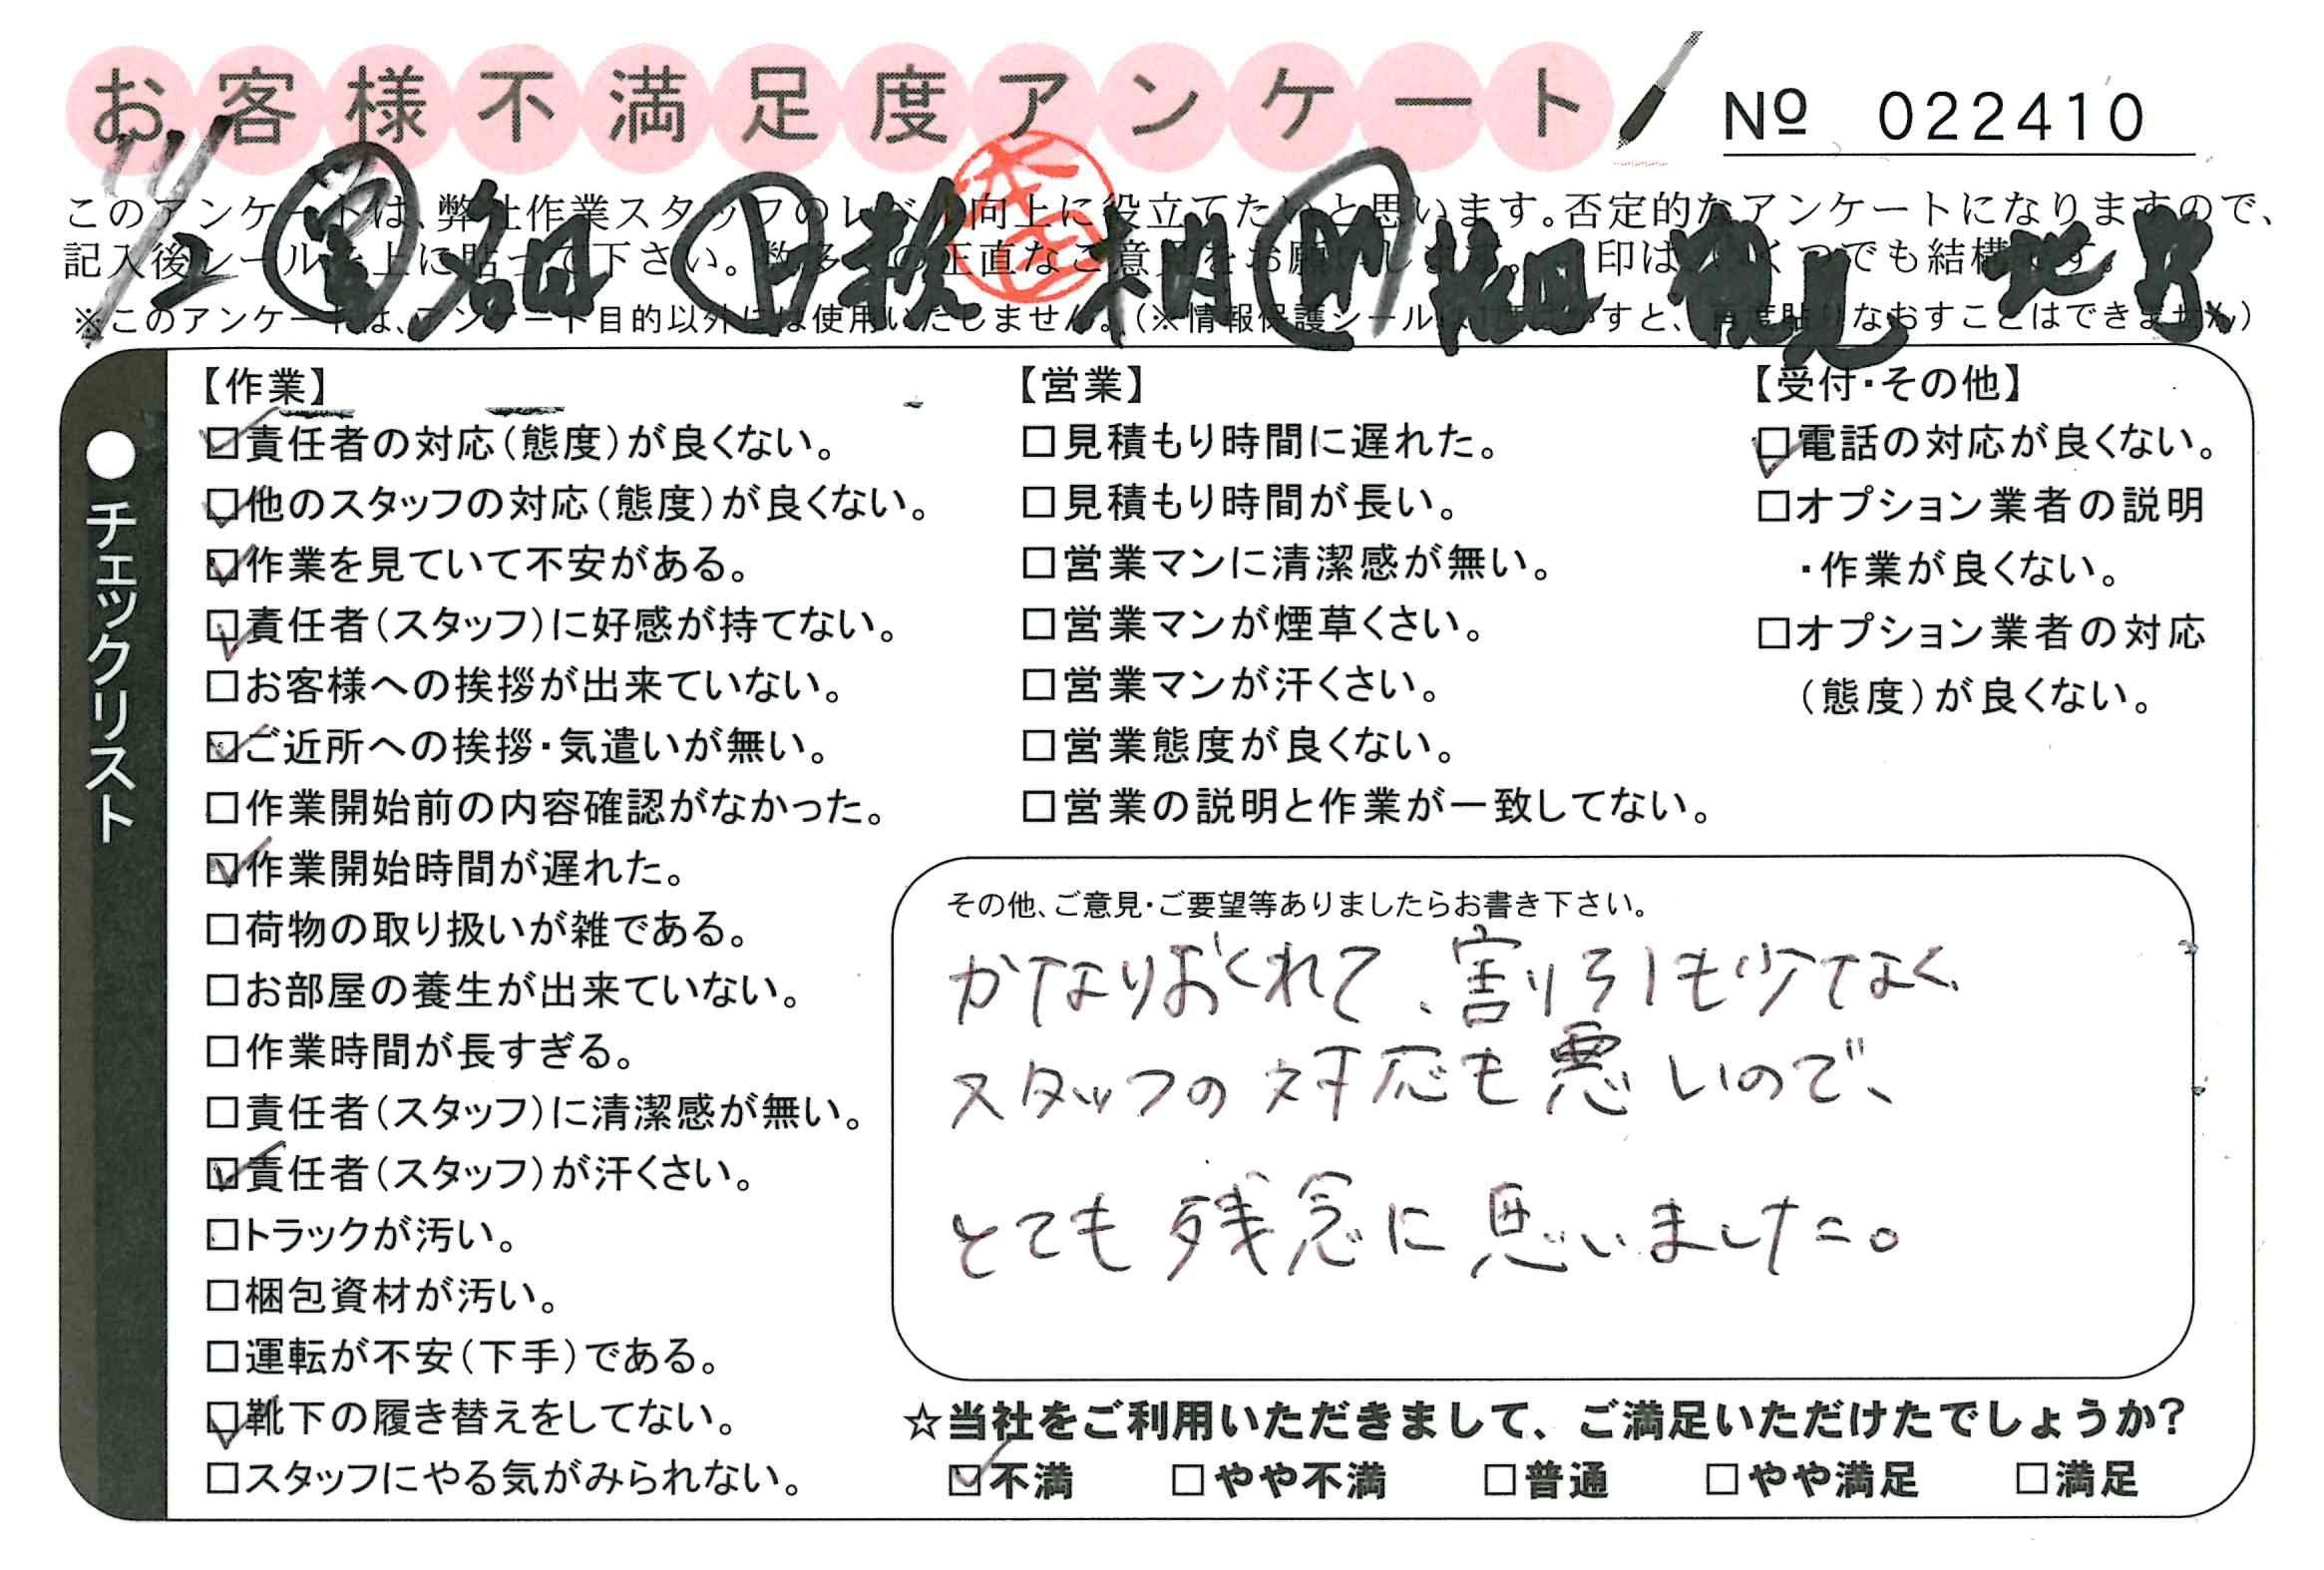 お客様不満足度アンケート
№ 022410
このアンケートは、弊社作業スタッフのレベル向上に役立てたいと思います。否定的なアンケートになりますので、
記入後シールを上に貼って下さい。数多くの正直なご意見をお願いします。 印はいくつでも結構です。
※このアンケートは、アンケート目的以外には使用いたしません。(※情報保護シールは1度はがすと、再度貼りなおすことはできません)
11/2
●チェックリスト
【作業】
☑責任者の対応(態度)が良くない。
☑他のスタッフの対応(態度)が良くない。
☑作業を見ていて不安がある。
☑責任者(スタッフ)に好感が持てない。
□お客様への挨拶が出来ていない。
☑ご近所への挨拶・気遣いが無い。
□作業開始前の内容確認がなかった。
☑作業開始時間が遅れた。
□荷物の取り扱いが雑である。
□お部屋の養生が出来ていない。
□作業時間が長すぎる。
□責任者(スタッフ)に清潔感が無い。
☑責任者(スタッフ)が汗くさい。
□トラックが汚い。
□梱包資材が汚い。
□運転が不安(下手)である。
☑靴下の履き替えをしてない。
□スタッフにやる気がみられない。
【営業】
□見積もり時間に遅れた。
□見積もり時間が長い。
□営業マンに清潔感が無い。
□営業マンが煙草くさい。
□営業マンが汗くさい。
□営業態度が良くない。
□営業の説明と作業が一致してない。
【受付・その他】
☑電話の対応が良くない。
□オプション業者の説明
・作業が良くない。
□オプション業者の対応
(態度)が良くない。
その他、ご意見・ご要望等ありましたらお書き下さい。
かなりおくれて、割り引も少なく、
スタッフの対応も悪いので、
とても残念に思いました。
☆当社をご利用いただきまして、ご満足いただけたでしょうか?
☑不満 □やや不満 □普通 □やや満足 □満足